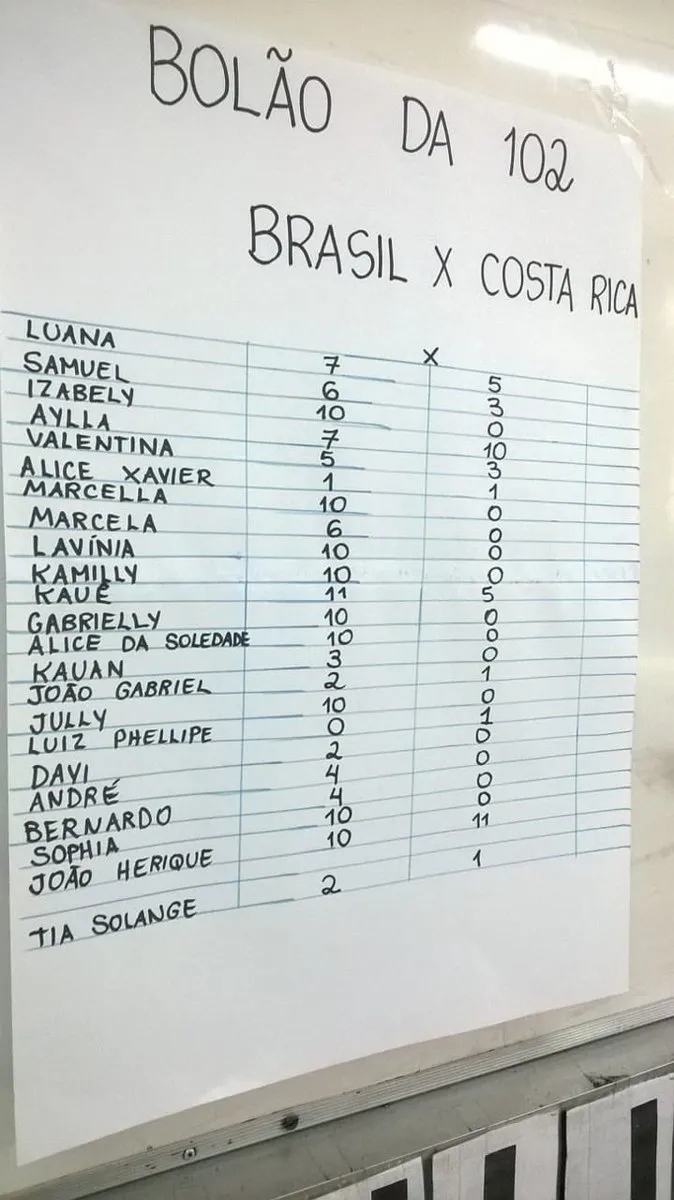 BOLÃO DA 102
BRASIL X COSTA RICA
LUANA 7 X 5
SAMUEL 6 3
IZABELY 10 0
AYLLA 7 10
VALENTINA 5 3
ALICE XAVIER 1 1
MARCELLA 10 0
MARCELA 6 0
LAVÍNIA 10 0
KAMILLY 10 0
KAUÊ 11 5
GABRIELLY 10 0
ALICE DA SOLEDADE 10 0
KAUAN 3 0
JOÃO GABRIEL 2 1
JULLY 10 0
LUIZ PHELLIPE 0 1
DAVI 2 0
ANDRÉ 4 0
BERNARDO 4 0
SOPHIA 10 0
JOÃO HERIQUE 10 11
TIA SOLANGE 2 1